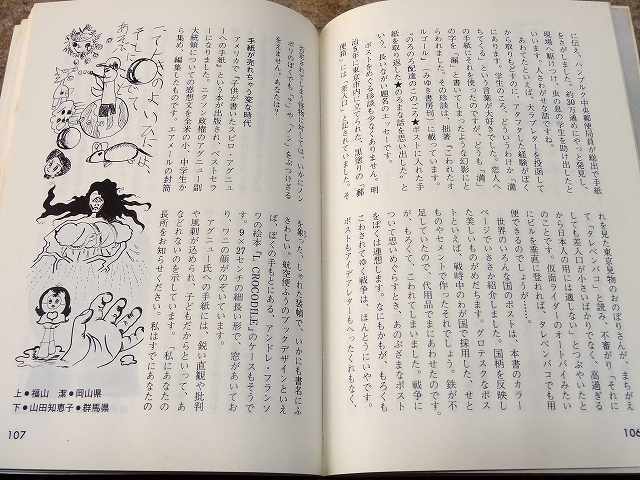 に伝え、ハンブルク中央郵便局員が総出で手紙
をさがしました。約30カ所めでやっと発見し、
現場へ駆けつけ、虫の息の学生を助け出したと
いいます。人さわがせな話ですね。
あわてたといえば、大ラブレターを投函して
から取りもどすのに、アタフタした経験がぼく
にあります。学生のころ、どういうわけか「満
ちてくる」という言葉が大好きでした。恋人へ
の手紙にそれを使ったのですが、どうも「満」
の字を「漏」と書いてしまったような幻影にと
りつかれました。その珍談は、拙著『こわれたオ
ルゴール』（みゆき書房刊）に載っています。
「のろのろ配達のこのごろ★ポストに入れた手
紙を取り返した★のろまな話を思い出した」と
いう、長いながい題名のエッセーです。
ポストをめぐる珍談も少なくありません。明
治5年に東京市内に立てられた、黒塗りの「郵
便箱」には「差入口」と白書されていました。
れを見た東京見物のおのぼりさんが、まちがえ
て「タレベンバコ」と読み、不審がり「それに
しても差入口が小さいばかりでなく、高過ぎる
から日本人の用には適しない」とつぶやいたと
のことです。仮面ライダーのオートバイみたい
にビルを垂直に登れれば、タレベンバコでも用
便できるのでしょうが……。
世界のいろんな国のポストは、本書のカラー
ページでいささか紹介しました。国柄を反映し
た美しいものがめだちます。グロテスクなポス
トといえば、戦時中のわが国で採用した、せと
ものやセメントで作ったそれでしょう。鉄が不
足していたので、代用品でまにあわせたのです
が、もろくて、こわれてしまいました。戦争に
ついて思いめぐらすとき、あのぶざまなポスト
をぼくは連想します。なにもかもが、もろくも
こわされてゆく戦争は、ほんとうにいやです。
ポストもアイデアレターもへったくれもなく、
106
手紙が売れちゃう変な時代
アメリカで『子供が書いたスピロ・アグニュ
ーへの手紙』という本が出版され、ベストセラ
ーになりました。ニクソン政権のアグニュー副
大統領についての感想文を全米の小、中学生か
ら集め、編集したものです。エアメールの封筒
を象った、しゃれた装幀で、いかにも書名にふ
さわしい。航空便ふうのブックデザインといえ
ば、ぼくの手もとにある、アンドレ・フランソ
ワの絵本『L CROCODILE』のケースもそうで
す。9×27センチの細長い形で、窓があいてお
り、ワニの顔がのぞいています。
アグニュー氏への手紙には、鋭い直観や批判
や風刺が込められ、子どもだからといって、あ
などれないのを示しています。「私にあなたの
長所をお知らせください。私はすでにあなたの
上●福山　潔●岡山県
下●山田知恵子●群馬県
107